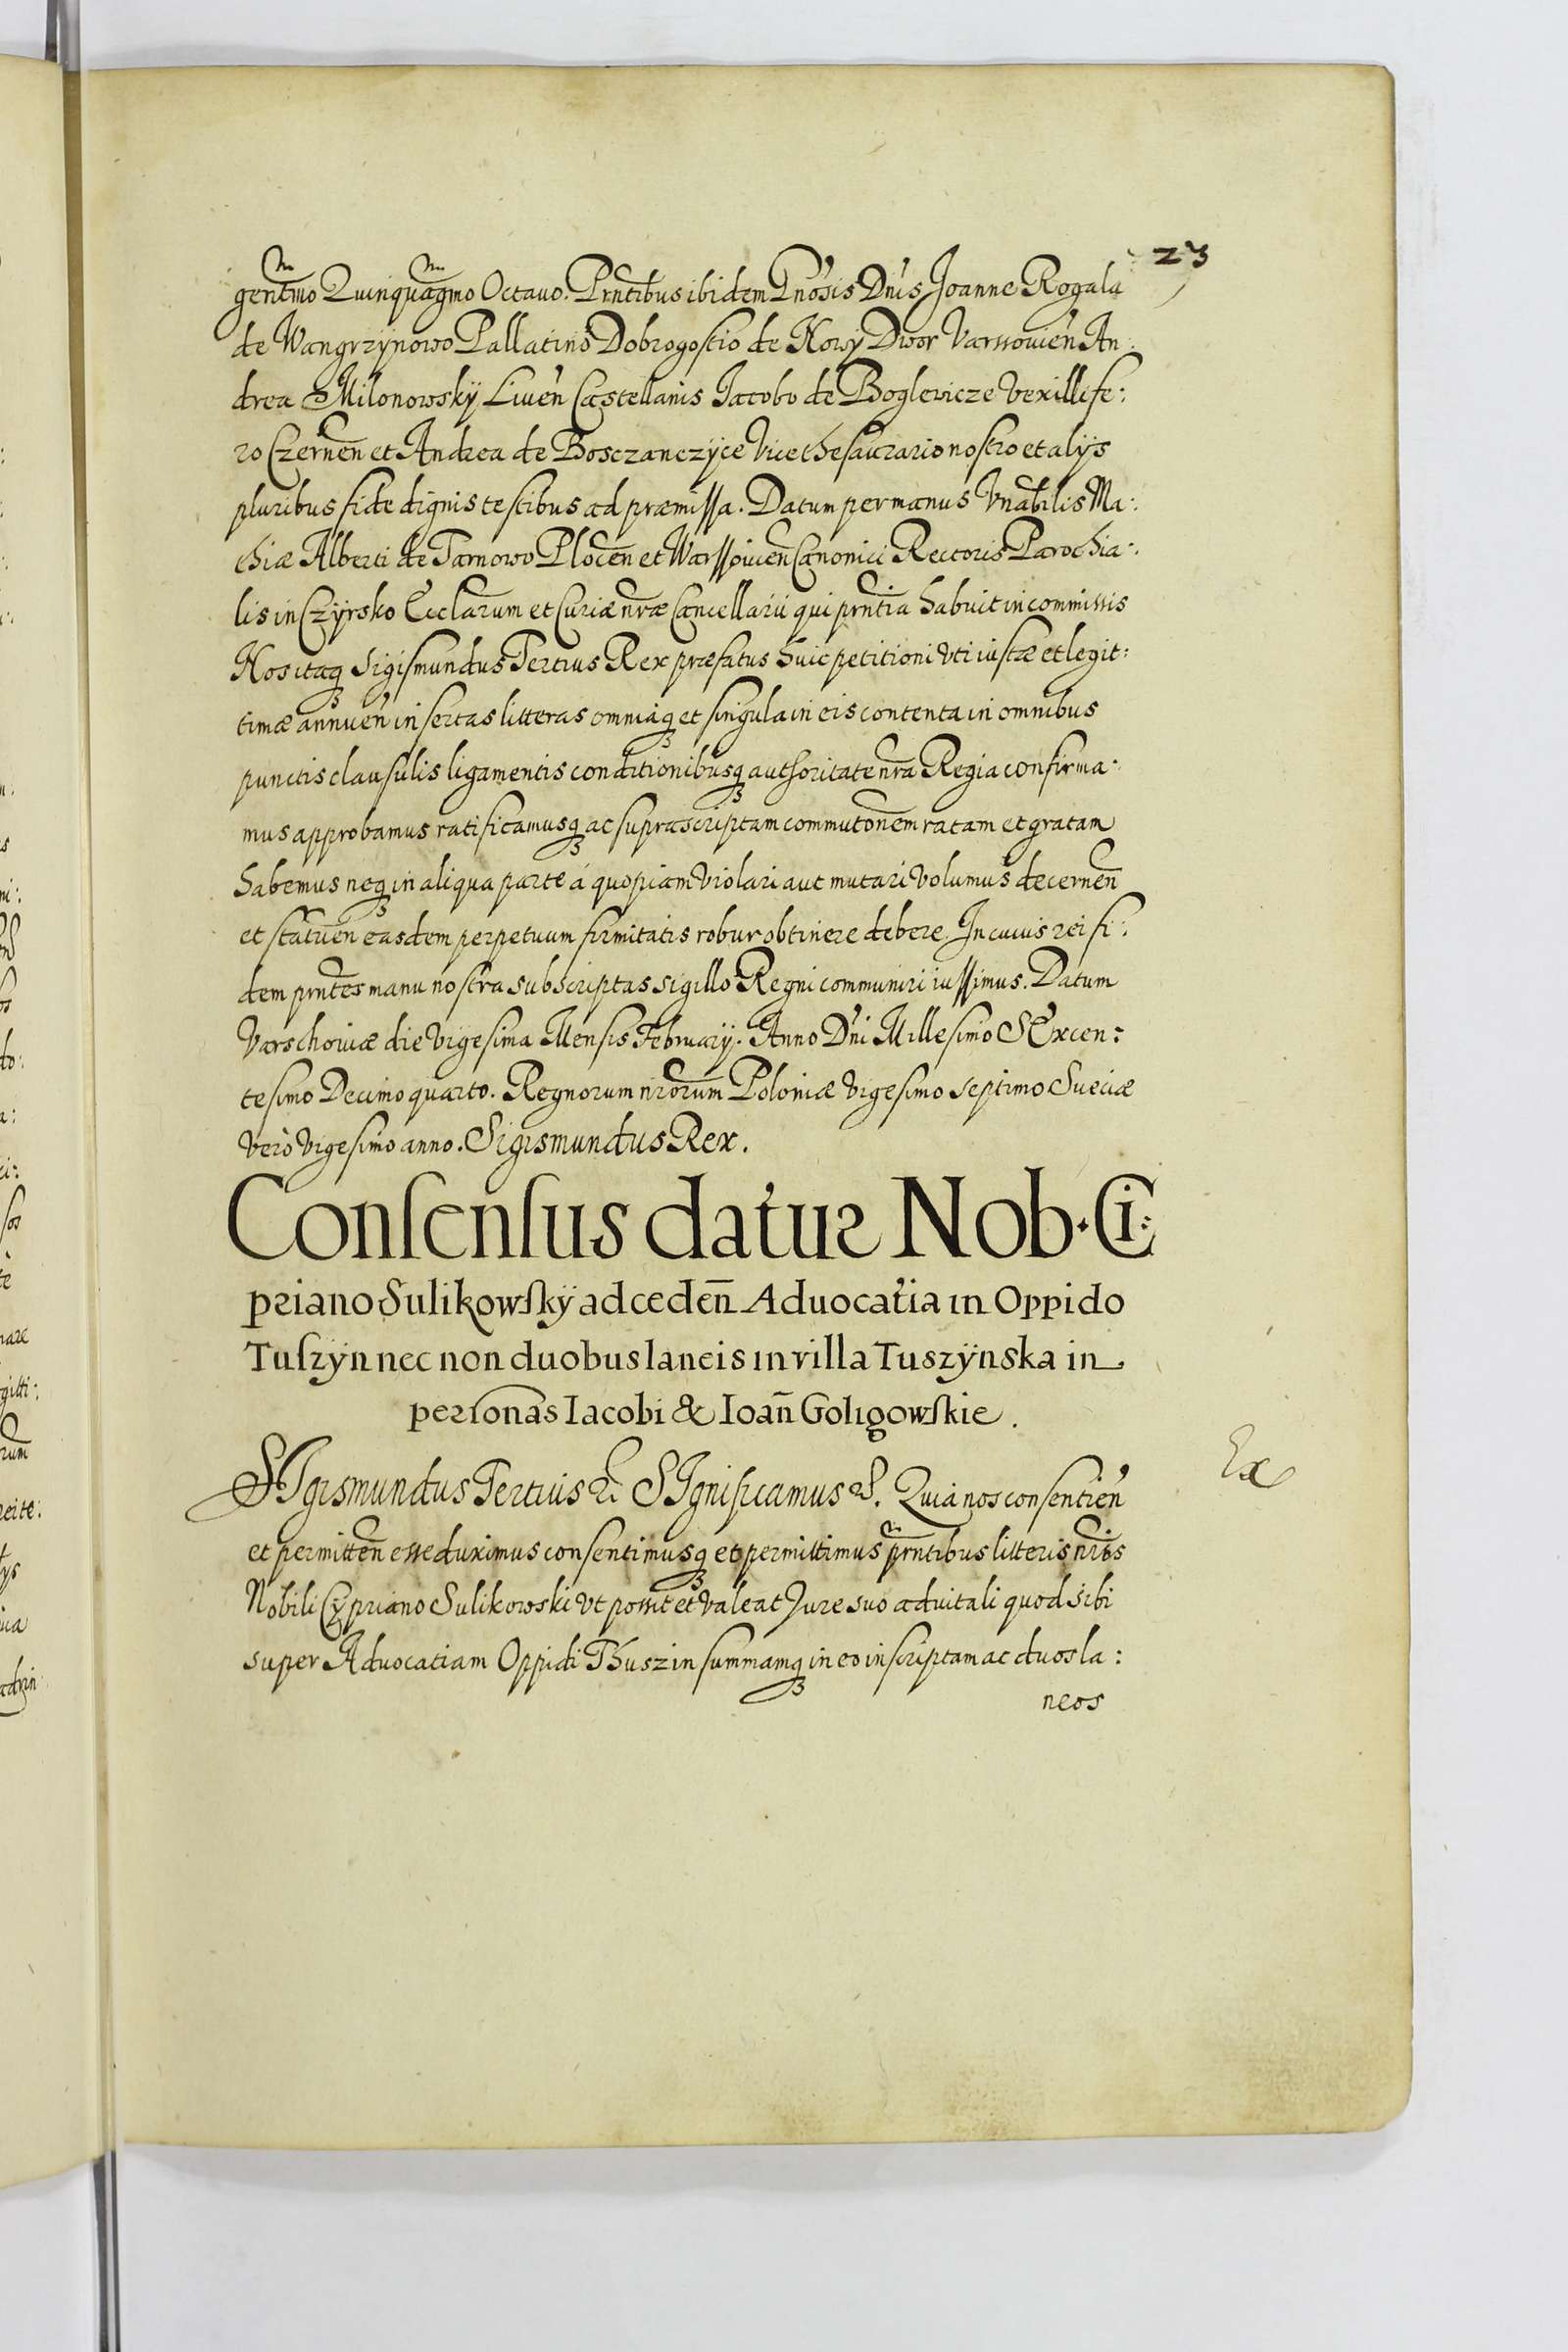 23
gentmo Quinquagmo Octauo. Prntibus ibidem Gnosis Dnis Joanne Rogala
de Wangrzynowo Pallatino Dobrogostio de Nowÿ Dwor Varssouien An
drea Milonowskÿ Liuen Castellanis Jacobo de Boglevicze Vexillife:
ro Czernen et Andrea de Bosczanczÿce Vicethesaurario nostro et alÿs
pluribus fide dignis testibus ad præmissa. Datum per manus Vnabilis Ma:
thiæ Alberti de Tarnowo Plocen et Warssouien Canonici Rectoris Parochia:
lis in Czÿrsko Ecclarum et Curiæ nræ Cancellarii qui prntia habuit in commissis
Nos itaq Sigismundus Tertius Rex præfatus huic petitioni vti iustæ et legit:
timæ annuen insertas litteras omniaq et singula in eis contenta in omnibus
punctis clausulis ligamentis conditionibusq authoritate nra Regia confirma:
mus approbamus ratificamusq ac suprascriptam commutonem ratam et gratam
habemus neq in aliqua parte á quopiam violari aut mutari volumus decernen
et statuen easdem perpetuum firmitatis robur obtinere debere. In cuius rei fi:
dem prntes manu nostra subscriptas sigillo Regni communiri iussimus. Datum
Varschouiæ die vigesima Mensis Februarÿ. Anno Dni Millesimo SExcen:
tesimo Decimo quarto. Regnorum nrorum Poloniæ vigesimo septimo Sueciæ
verò vigesimo anno. Sigismundus Rex.
Consensus datur Nob. Ci:
priano Sulikowskÿ ad ceden̄ Aduocatia in Oppido
Tuszÿn nec non duobus laneis in villa Tuszÿnska in
personas Iacobi & Ioan̄ Goligowskie.
SIgismundus Tertius &. SIgnificamus &. Quia nos consentien
et permitten esse duximus consentimusq et permittimus prntibus litteris nris
Nobili Cÿpriano Sulikowski vt possit et valeat Jure suo aduitali quod sibi
super Aduocatiam Oppidi Thuszin summamq in eo inscriptam ac duos la:
neos